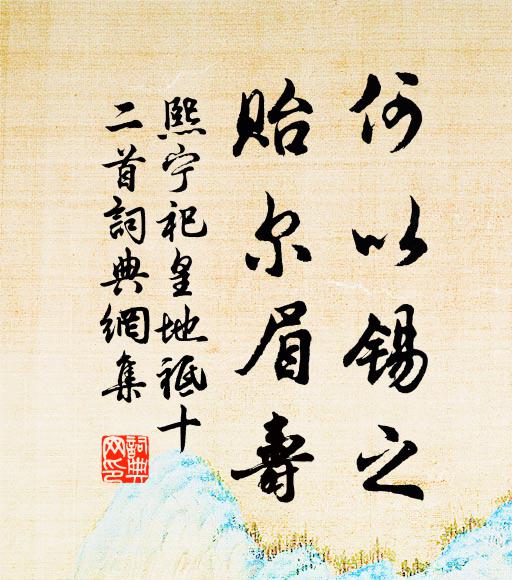 何以锡之
贻尔眉寿
熙宁祀皇地祇十
二首詞典網集
詞典网印